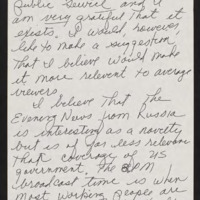 Public Service and I
am very grateful that it
exists. I would, however,
like to make a suggestion
that I believe would make
it more relevent to average
viewers
I believe that the
Evening News from Russia
is interesting as a novelty
but is of far less relevance
than coverage of US
government. The PM
broadcast time is when
most working people are